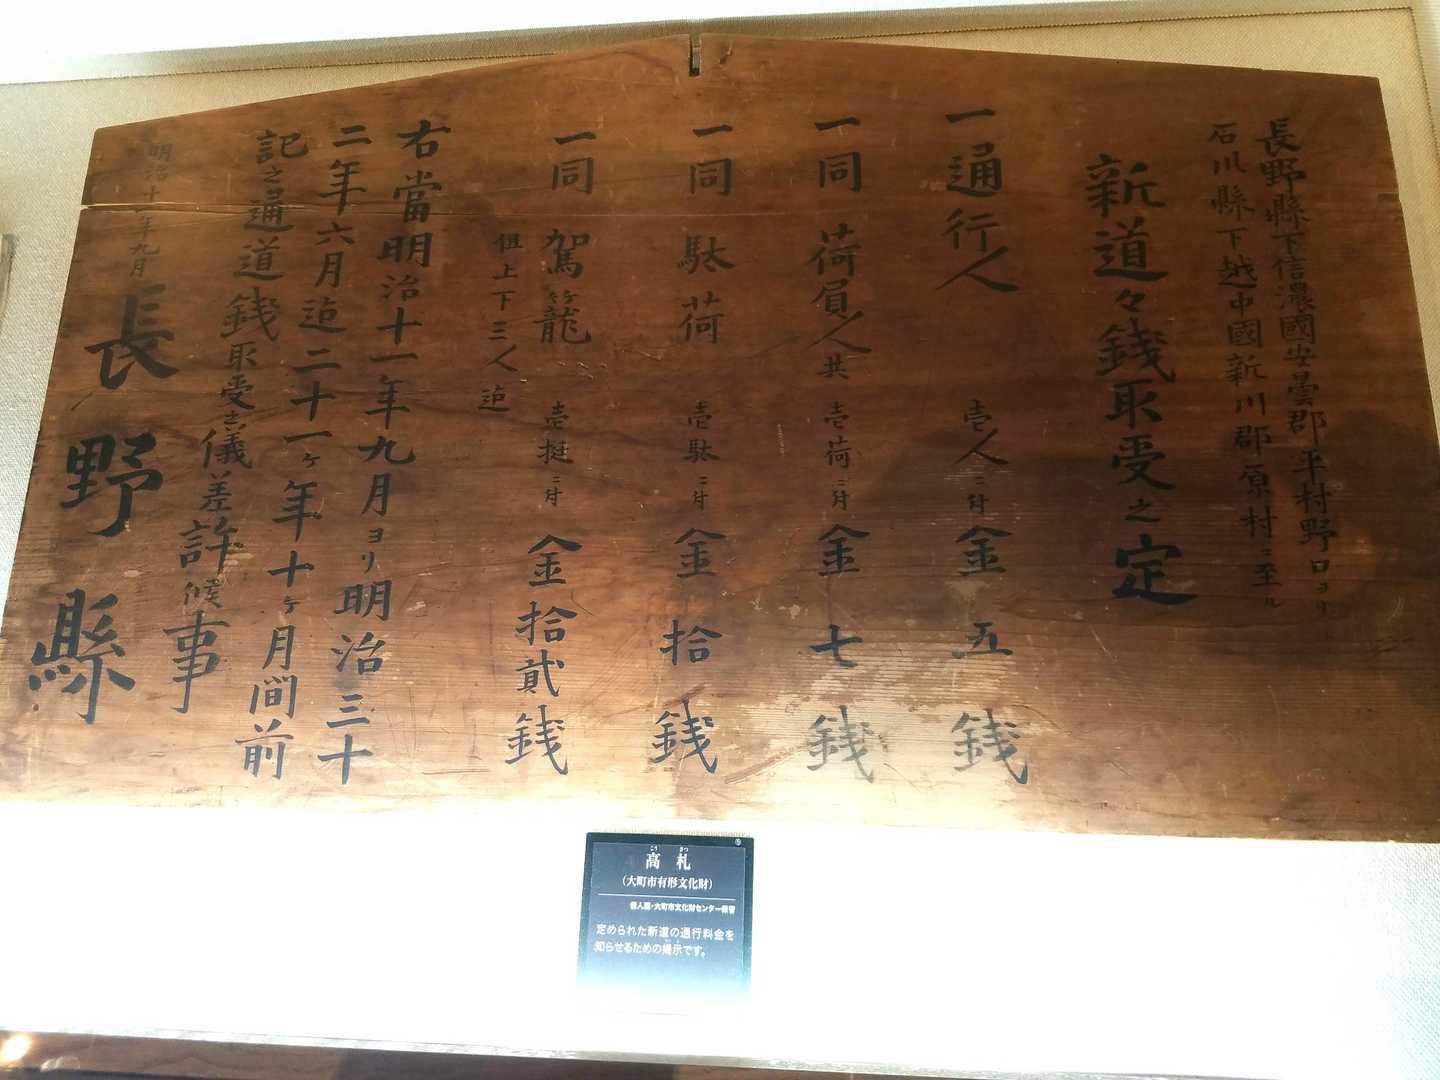 長野縣下信濃國安曇郡平村野口ヨリ
石川縣下越中國新川郡原村ニ至ル
新道々銭取受之定
一通行人 壱人ニ付金五銭
一同 荷負人共 壱荷ニ付金七銭
一同 駄荷 壱駄ニ付金拾銭
一同 駕籠 壱挺ニ付金拾貳銭
但上下三人迠
右當明治十一年九月ヨリ明治三十
二年六月迠二十一ヶ年十ヶ月間前
記之通道銭取受之儀差許候事
明治十一年九月
長野縣
こう さつ
高札
(大町市有形文化財)
個人蔵・大町市文化財センター保管
定められた新道の通行料金を
知らせるための掲示です。